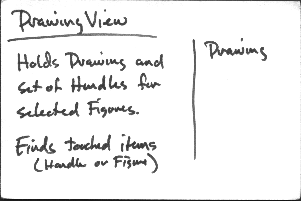 Drawing View
Holds Drawing and
set of Handles for
selected Figures.
Finds touched items
(Handle or Figure)
Drawing